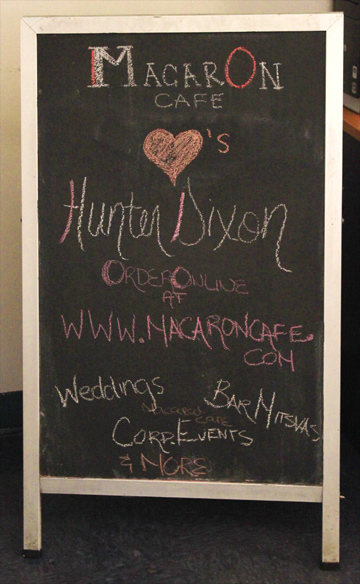 MACARON
CAFE
♥'S
Hunter Dixon
ORDER ONLINE
AT
WWW.MACARONCAFE.
COM
WEDDINGS
BAR MITSVAS
MACARON CAFE
CORP. EVENTS
& MORE